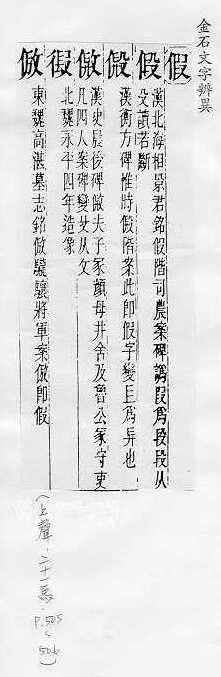 金石文字辨異
假
叚
漢北海相景君銘假階司農案碑譌叚爲段段从
殳讀若斷
漢衡方碑惟時假階案此即假字變𠀐爲异也
漢史晨後碑倣夫子冢顏母井舍及魯公冢守吏
凡四人案碑變殳从文
北魏永平四年造像
東魏高湛墓志銘倣驤驤將軍案倣即假
(上聲.二十一馬.
P.505
506)